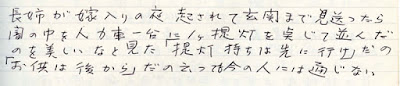 長姉が嫁入りの夜 起されて玄関まで見送ったら
闇の中を人力車一台に1ヶ提灯を灯して並んだ
のを美しいなと見た「提灯持ちは先に行け」だの
「お供は後から」だの云っても今の人には通じない